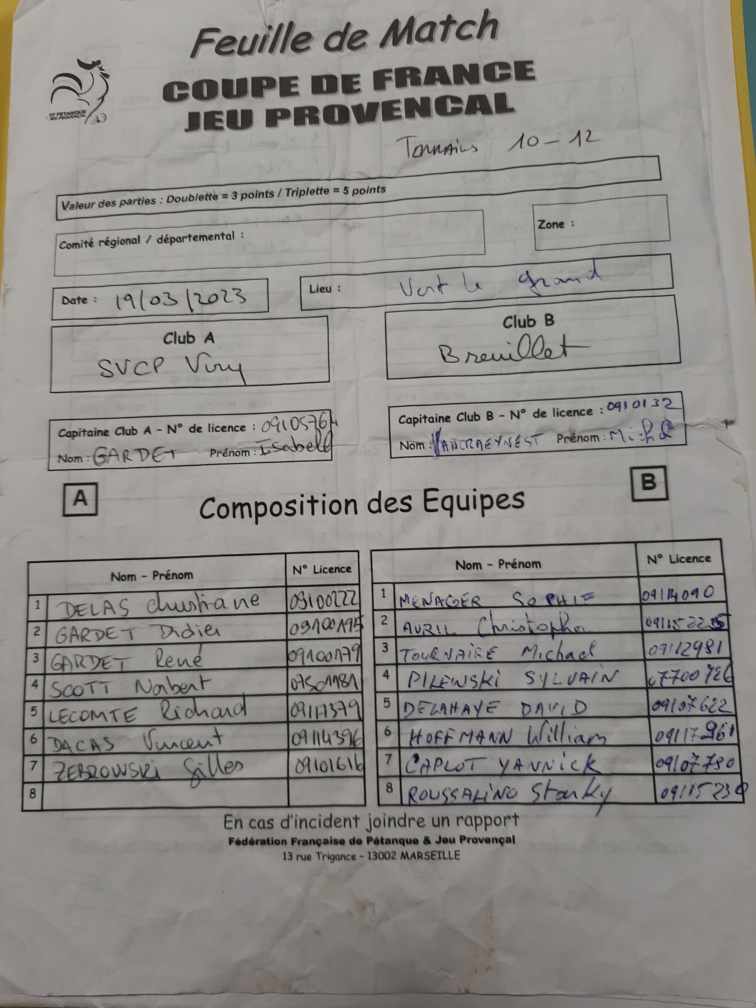 Feuille de Match
COUPE DE FRANCE
JEU PROVENCAL
Terrains 10-12
Valeur des parties : Doublette = 3 points / Triplette = 5 points
Comité régional / départemental :
Zone :
Date : 19/03/2023
Lieu : Vert le grand
Club A
SVCP Viry
Club B
Breuillet
Capitaine Club A - N° de licence :
Nom : GARDET Prénom : Isabell
Capitaine Club B - N° de licence : 0910132
Nom : Prénom :
A
Composition des Equipes
B
Nom - Prénom N° Licence
1 DELAS christiane 09100222
2 GARDET Didier
3 GARDET René 09100179
4 SCOTT Norbert
5 LECOMTE Richard 09117379
6 DACAS Vincent
7 ZEBROWSKI Gilles 09101616
8
Nom - Prénom N° Licence
1 MENAGER SOPHIE 09114090
2 AVRIL Christophe
3 TOURNAIRE Michael 09112981
4 PILEWSKI SYLVAIN
5 DELAHAYE DAVID 09107622
6 HOFFMANN William 09117961
7 CAPLOT YANNICK 09107780
8 ROUSSALINO Starky
En cas d'incident joindre un rapport
Fédération Française de Pétanque & Jeu Provençal
13 rue Trigance - 13002 MARSEILLE